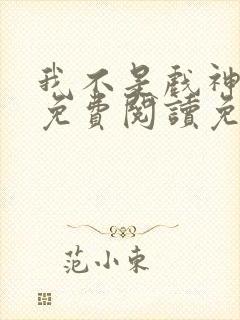 我不是戲神
免費閱讀免
范小東